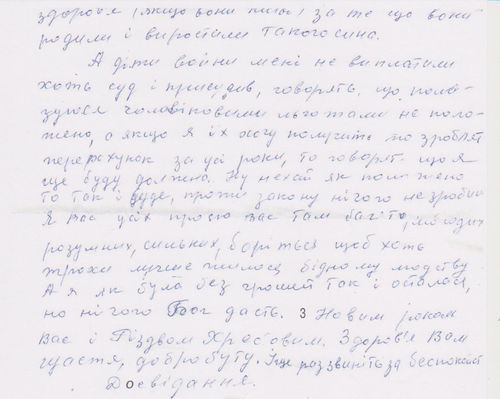 здоровя (якщо вони живі) за те що вони
родили і виростили такого сина.
А діти войни мені не виплатили
хоть суд і присудив, говорять, що поль-
зуюся чоловіковими льготами не поло-
жено, а якщо я їх хочу получить то зроблят
перерахунок за усі роки, то говорят що я
ще буду должна. Ну нехай як положено
то так і буде, проти закону нічого не зробиш
Я Вас усіх прошу вас там багато, молодих
розумних, сильних, боріться щоб хоть
трохи лучше жилося бідному людству
А я як була без грошей так і осталася,
но нічого Бог дасть. З Новим роком
Вас і Різдвом Хрстовим. Здоров'я Вам
щастя, добробуту. Іще раз звиніть за беспокойст
Досвідання.